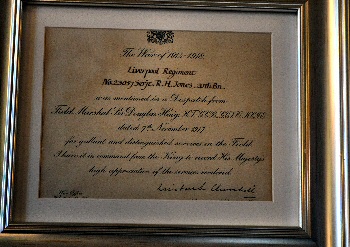 The War of 1914-1918.
Liverpool Regiment
Serjt. R. H. Jones,
was mentioned in a Despatch from
Field Marshal Sir Douglas Haig, K.T. G.C.B. G.C.V.O. K.C.I.E.
dated 7th November 1917
for gallant and distinguished services in the Field.
I have it in command from the King to record His Majesty's
high appreciation of the services rendered.
Winston S. Churchill
War Office